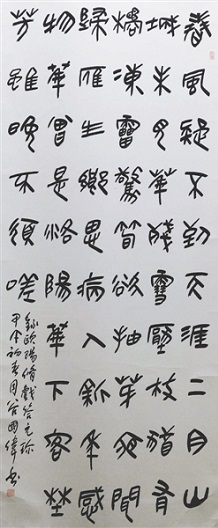 春風疑不到天涯二月山
城未見華殘雪壓枝猶有
橘凍雷驚筍欲抽芽夜聞
歸雁生鄉思病入新年感
物華曾是洛陽華下客野
芳雖晚不須嗟
錄歐陽脩戲答元珍
甲午初春谷國偉書